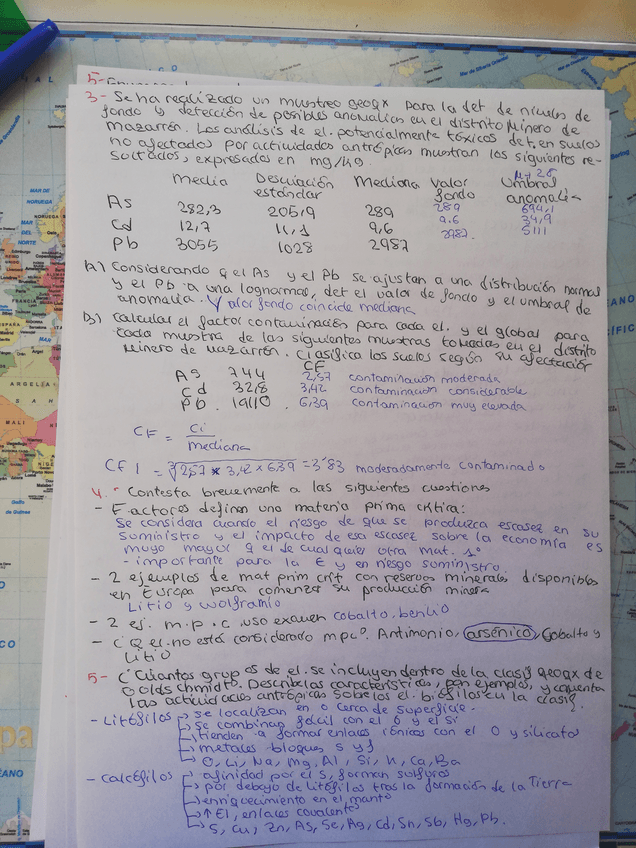 3- Se ha realizado un muestreo geoqx para la det de niveles de
fondo y detección de posibles anomalías en el distrito Minero de
Mazarrón. Los análisis de el. potencialmente tóxicos det, en suelos
no afectados por actividades antrópicas muestran los siguientes re-
sultados, expresados en mg/kg.
Media Desviación estándar Mediana Valor fondo Umbral anomalía
As 282,3 205,9 289 289 694,1
Cd 12,7 11,1 9,6 9.6 34,9
Pb 3055 1028 2987 2987. 5111
A) Considerando q el As y el Pb se ajustan a una distribución normal
y el Pb a una lognormal, det el valor de fondo y el umbral de
anomalía. Valor fondo coincide mediana
B) Calcular el factor contaminación para cada el. y el global para
cada muestra de las siguientes muestras tomadas en el distrito
Minero de Mazarrón. Clasifica los suelos según su afectación
CF
As 744 2,57 contaminación moderada
Cd 32,8 3,42 contaminación considerable
Pb. 19110. 6,39 contaminación muy elevada
CF = Ci / mediana
CF 1 = ∛2,57 * 3,42 x 6,39 = 3'83 moderadamente contaminado
4.- Contesta brevemente a las siguientes cuestiones
- Factores definen una materia prima crítica:
Se considera cuando el riesgo de que se produzca escasez en su
suministro y el impacto de esa escasez sobre la economía es
muyo mayor q el de cualquier otra mat. 1º
- importante para la € y en riesgo suministro
- 2 ejemplos de mat prim crít con reservas minerales disponibles
en Europa para comenzar su producción minera
Litio y wolframio
- 2 ej. m.p.c. uso examen cobalto, berilio
- ¿Q el. no está considerado mpc?. Antimonio, arsénico, Cobalto y
Litio
5- ¿Cuántos grupos de el. se incluyen dentro de la clasif geoqx de
Goldschmidt. Describe las características, pon ejemplos, y comenta
las actividades antrópicas sobre los el. biófilos en la clasif.
- Litófilos → se localizan en o cerca de superficie.
→ se combinan fácil con el O y el Si
→ tienden a formar enlaces iónicos con el O y silicatos
→ metales bloques s y f
→ O, Li, Na, Mg, Al, Si, K, Ca, Ba
- Calcófilos → afinidad por el S, forman sulfuros
→ por debajo de Litófilos tras la formación de la Tierra
→ enriquecimiento en el manto
→ ↑ EI, enlaces covalentes
→ S, Cu, Zn, As, Se, Ag, Cd, Sn, Sb, Hg, Pb.
ARGELIA
MALI
MAR DEL NORTE